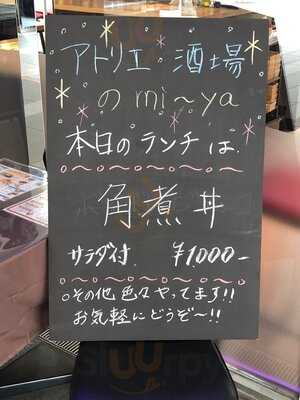 アトリエ 酒場
の mi～ya
本日のランチは、
角煮丼
サラダ付 ¥1000-
○その他色々やってます!!
お気軽にどうぞ～!!
sluurpy